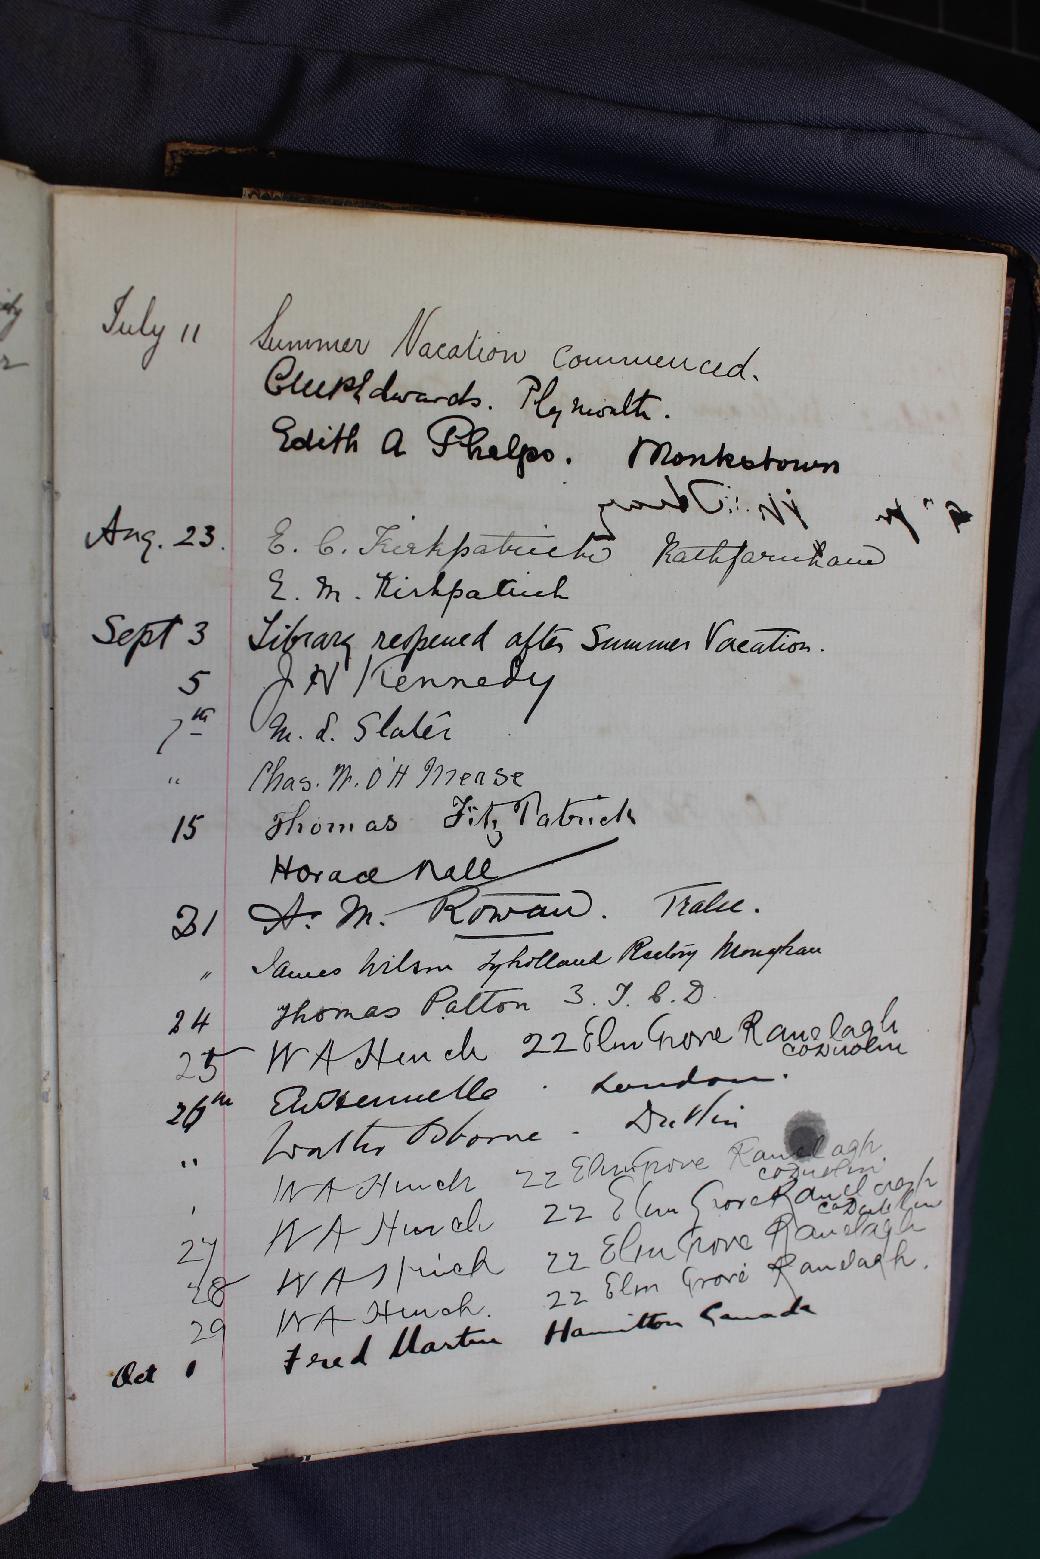 July 11 Summer Vacation commenced.
Edwards. Plymouth.
Edith A Phelps. Monkstown
Aug. 23. E. C. Kirkpatrick Rathfarnham
E. M. Kirkpatrick
Sept 3 Library reopened after Summer Vacation.
5 J N Kennedy
7th M. S. Slater
" Chas. W. O'H Mease
15 Thomas FitzPatrick
Horace Wall
21 A. M. Rowan. Tralee.
" James Wilson Tyholland Rectory Monaghan
24 Thomas Patton 3. T. C. D.
25 W A Hinch 22 Elm Grove Ranelagh
Co Dublin
26th London.
" Walter Osborne - Dublin
W A Hinch 22 Elm Grove Ranelagh
Co Dublin
27 W A Hinch 22 Elm Grove Ranelagh
Co Dublin
28 W A Hinch 22 Elm Grove Ranelagh
29 W A Hinch. 22 Elm Grove Ranelagh.
Oct 1 Fred Martin Hamilton Canada